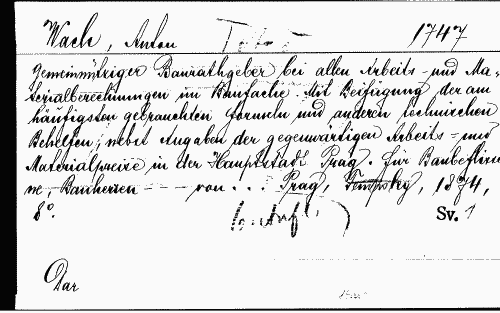 Wach, Anton 1747
Gemeinnütziger Baurathgeber bei allen Arbeits- und Ma-
terialberechnungen im Baufache. Mit Beifügung der am
häufigsten gebrauchten Formeln und anderen technischen
Behelfen; nebst Angaben der gegenwärtigen Arbeits- und
Materialpreise in der Hauptstadt Prag. Für Baubeflisse-
ne, Bauherren — von ... Prag, Tempsky, 1874,
8°. Sv. 1
Dar